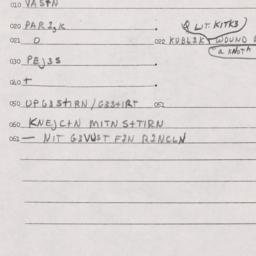 010 VAS+N
020 PAR2,K .
& LIT. KITKS
021 O 022 KUBL3K WOUND
030 PEJ3S .
040 + .
050 OPG3S+IRN/G3S+IRT 051
060 KNEJC+N MITN S+TIRN
061 — NIT G3VUST F2N R2NCLN